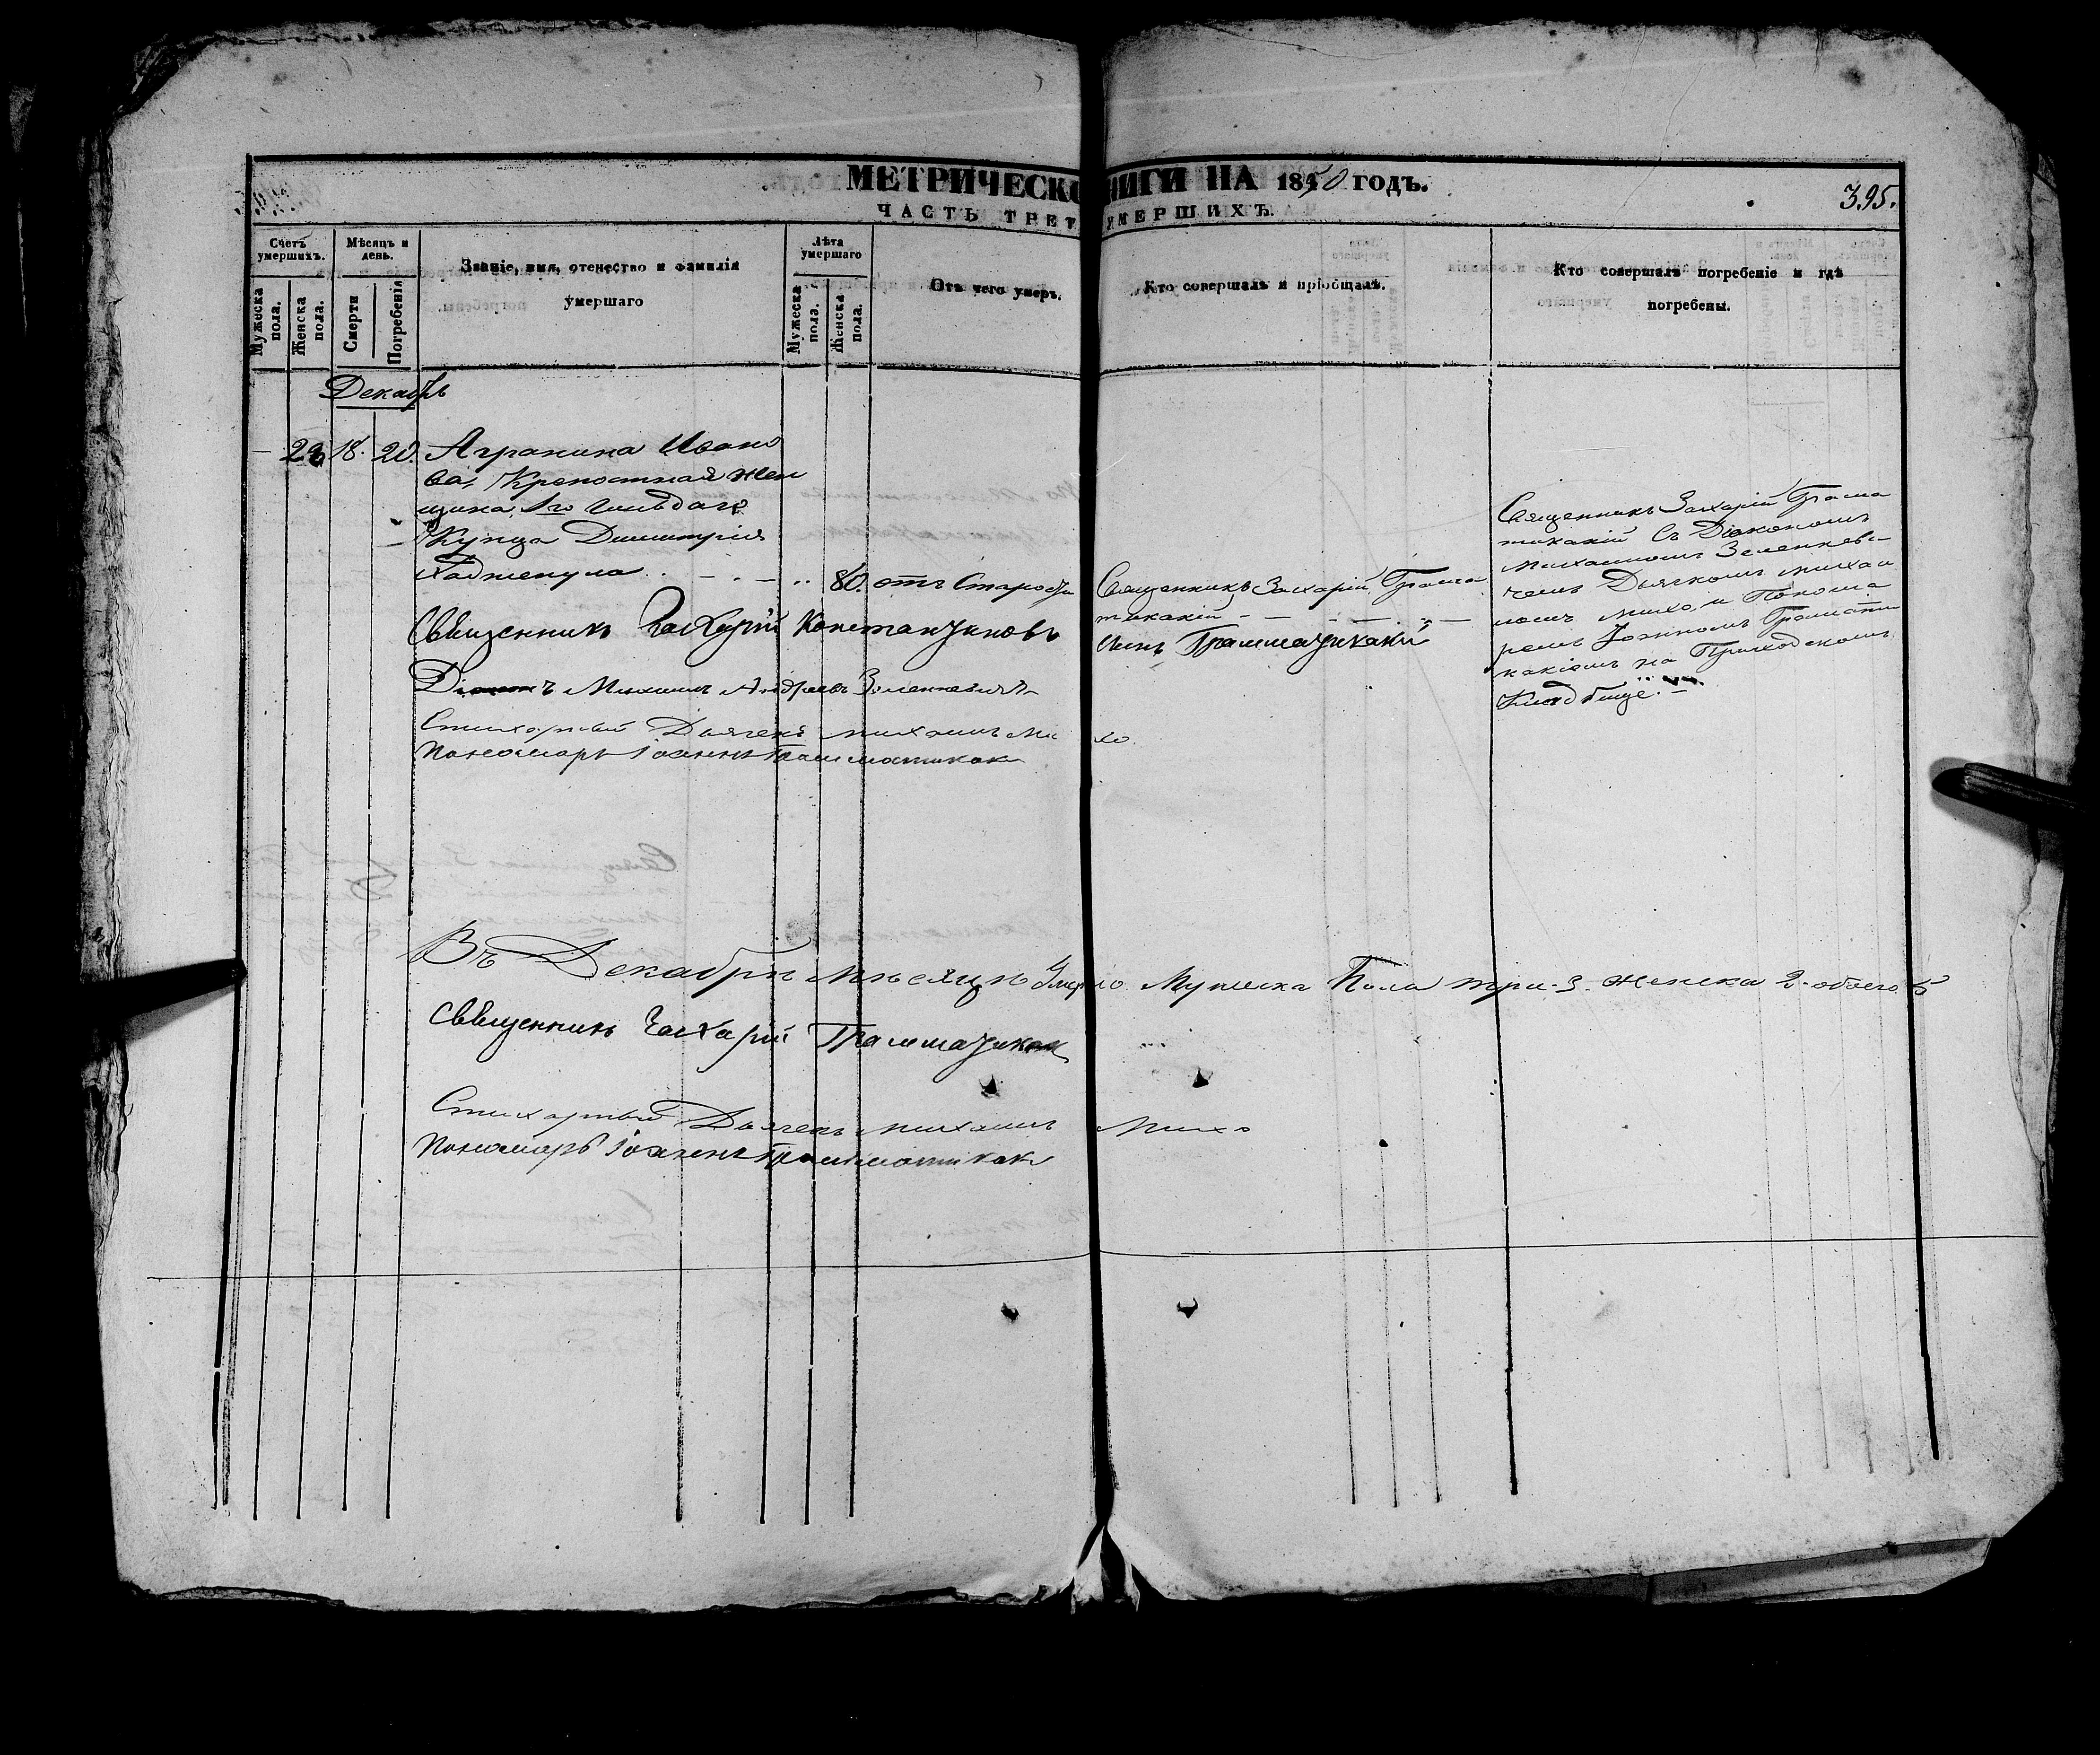 МЕТРИЧЕСКО НИГИ НА 1850 ГОДЪ.
395.
ЧАСТЬ ТРЕТ УМЕРШИХЪ.
Счетъ умершихъ.
Мужеска пола.
Женска пола.
Мѣсяцъ и день.
Смерти
Погребенія
Званіе, имя, отечество и фамилія
умершаго
Лѣта умершаго
Мужеска пола.
Женска пола.
Отъ чего умеръ.
Кто совершалъ и пріобщалъ.
Кто совершалъ погребеніе и гдѣ
погребены.
Декабрь
— 23 18. 20. Аграпина Ивано
ва, Крепостная жен
щина 1го Гильдаго
Купца Димитрія
Хаджепула . — . — .. 80. отъ Старости
Священникъ Захарій Грама
тикакій — — — —
Священникъ Захарій Грама
тикакій Съ Діакономъ
Михаиломъ Зеленкеви
чемъ Дьячкомъ михаи
ломъ михо и Понома
ремъ Іоанномъ Грамати
какіемъ на Приходскомъ
Кладбище. —
Священникъ Захарій Константиновъ
Грамматикакій
Діаконъ Михаилъ Андреевъ Зеленкевичъ
Стихарный Дьячекъ михаилъ Ми хо
Пономарь Іоаннъ Грамматикаки
Въ Декабрѣ мѣсяцѣ Умерло Мужеска Пола три 3. женска 2. обоего 5
Священникъ Захарій Грамматикаки
Стихарный Дьячекъ михаилъ Михо
Пономарь Іоаннъ Грамматикаки